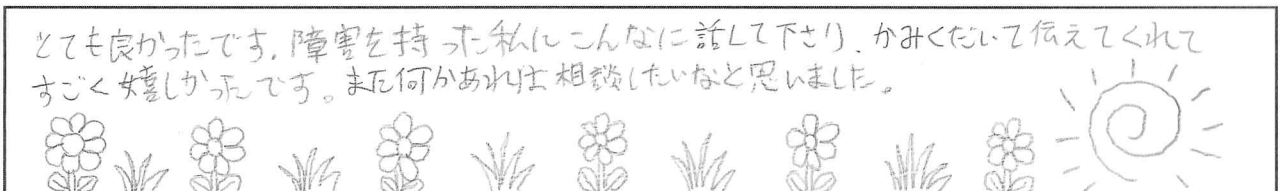 とても良かったです。障害を持った私にこんなに話して下さり、かみくだいて伝えてくれて
すごく嬉しかったです。また何かあれば相談したいなと思いました。